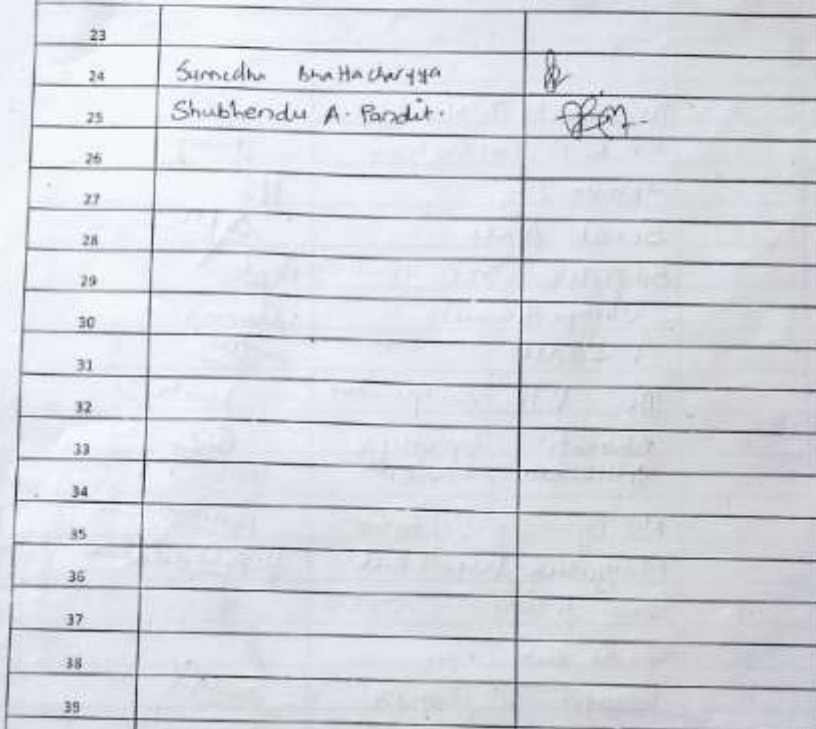 23
24 Sumedha Bhattacharyya
25 Shubhendu A. Pandit.
26
27
28
29
30
31
32
33
34
35
36
37
38
39